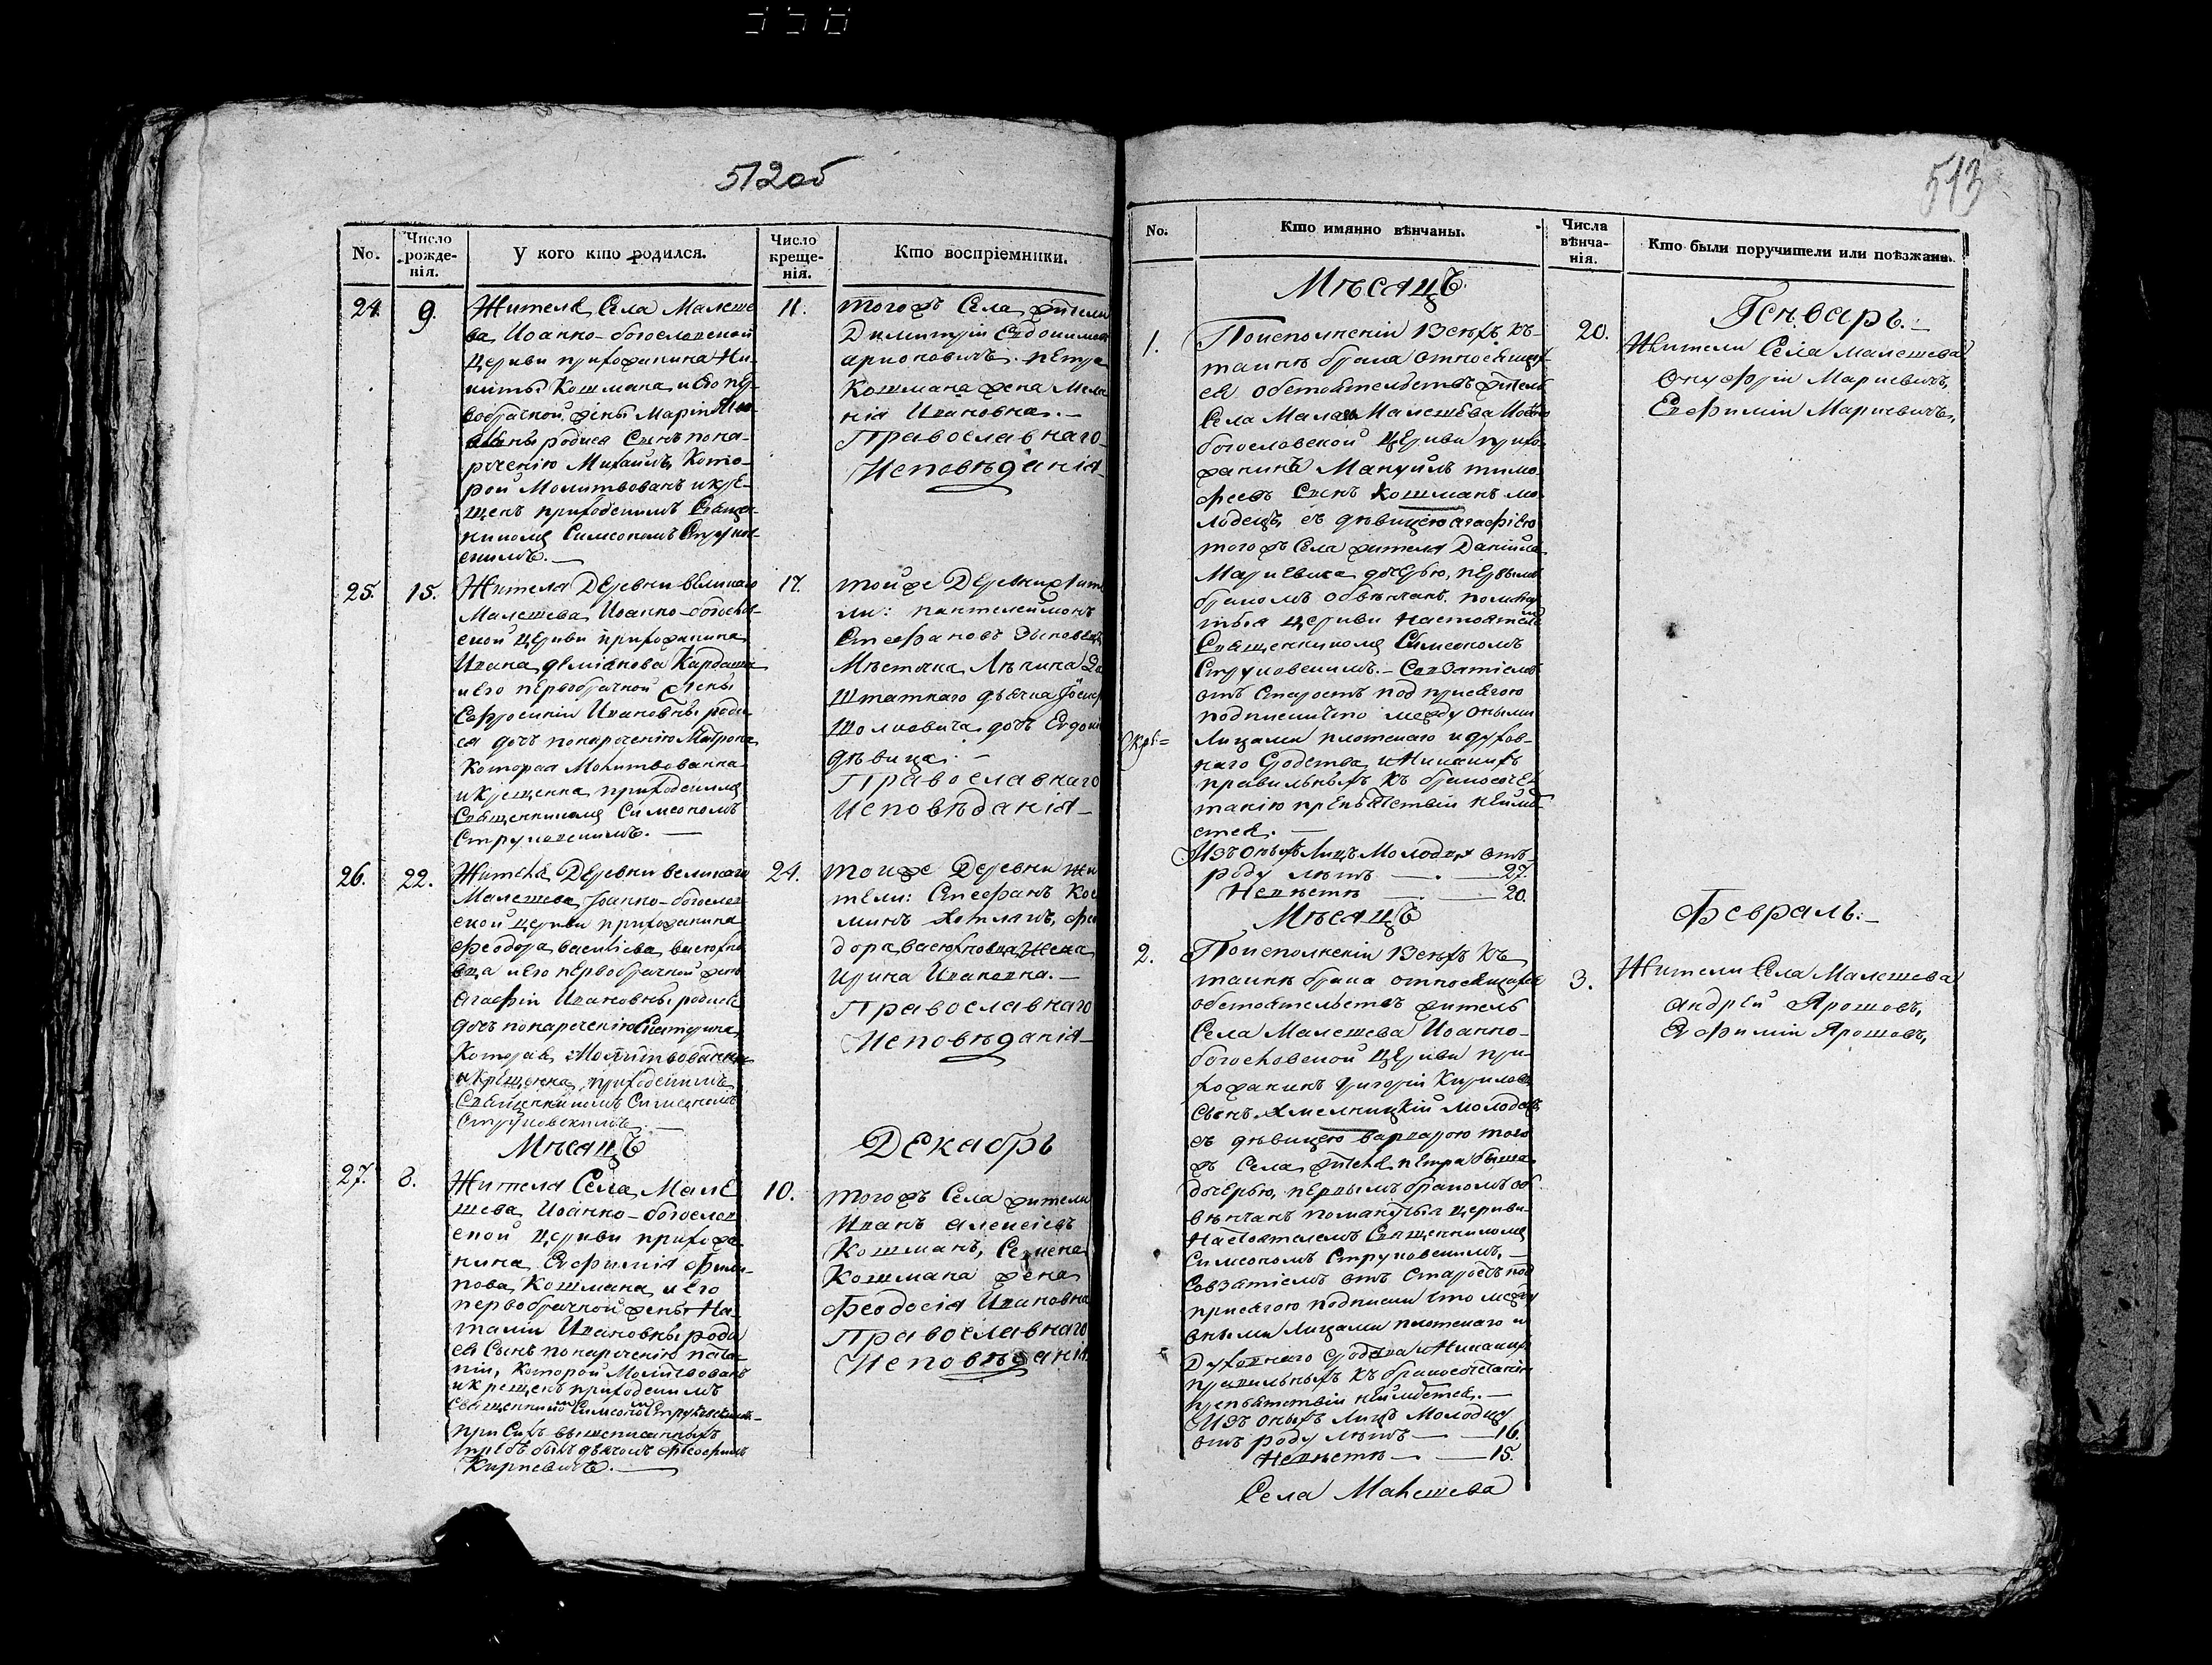 512об
No.
Число рожде-нія.
У кого кто родился.
Число креще-нія.
Кто воспріемники.
24.
9.
Жителя Села Малеше
ва Іоанно-богословской
Церкви прихожанина Ни-
киты Кошмана и его пер-
вобрачной жены Маріи
родися Сынъ пона-
реченію Михаилъ, Кото-
рой Молитвованъ икре-
щенъ приходскимъ Свяще-
нникомъ Симеономъ Струков-
скимъ.
11.
тогожъ Села жители
Димитрій
Петра
Кошмана жена Мела
нія Ивановна.
Православнаго
Исповѣданія
25.
15.
Жителя Деревни великаго
Малешева Іоанно-богослов-
ской Церкви прихожанина
Ивана деміанова Кардаша
и Его первобрачной жены
Евфросиніи Ивановны роди-
ся дочь понареченію Матрона
Которая Молитвованна
и крещенна приходскимъ
Священникомъ Симеономъ
Струковскимъ.
17.
тойже Деревни жите
ли: пантелеймонъ
Стефановъ
Мѣстечка
Штатнаго дьячка Іосифа
дочь Евдокія
дѣвица.
Православнаго
Исповѣданія
26.
22.
Жителя Деревни великаго
Малешева Іоанно-богослов
ской церкви прихожанина
Феодора василіева
и Его первобрачной жены
Агафіи Ивановны родися
дочь понареченію Екатерина,
Которая Молитвованна
и крещенна, приходскимъ
Священникомъ Симеономъ
Струковскимъ.
24.
тойже Деревни жи
тели: Стефанъ Кос
минъ
дора Жена
Ирина Ивановна.
Православнаго
Исповѣданія
Мѣсяцъ
Декабрь
27.
8.
Жителя Села Мале
шева Іоанно-богослов
ской церкви прихожа
нина Евфимія Фили-
пова Кошмана и Его
первобрачной жены На-
таліи Ивановны роди
ся Сынъ понареченію
Которой Молитвованъ
и крещенъ приходскимъ
Священникомъ Симеономъ Струковскимъ
при Сихъ вышеписанныхъ
требѣ былъ дьячокъ
Кирневичъ.
10.
тогожъ Села жители
Иванъ Алексіевъ
Кошманъ, Семена
Кошмана жена
Феодосія Ивановна
Православнаго
Исповѣданія
513
No.
Кто имянно вѣнчаны.
Числа вѣнча-нія.
Кто были поручители или поѣзжане.
Мѣсяцъ
Генварь.
1.
Поисполненіи Всѣхъ къ
таинѣ брака относящих-
ся обстоятельствъ житель
Села Малешева Іоанно
богословской Церкви прихо-
жанинъ Мануилъ тимо-
феевъ Сынъ Кошманъ мо-
лодецъ, съ дѣвицею агафіею
тогожъ Села жителя Даніила
Мариевича дочерью, первымъ
бракомъ обвѣнчанъ помяну
тыя церкви настоятелемъ
Священникомъ Симеономъ
Струковскимъ. Совзятіемъ
отъ Старостъ под присягою
подписки что между оными
Лицами плотскаго и духов-
наго Сродства и Никакихъ
правильныхъ къ бракосоче-
танію препятствій неимѣ
ется.
Изъ оныхъ Лицъ Молодцу отъ
роду лѣтъ — 27.
Невѣстѣ — 20.
20.
Жители Села малешева
Онуфрій Мариевичъ,
Евфимій Мариевичъ,
Мѣсяцъ
Февраль.
2.
Поисполненіи Всѣхъ къ
таинѣ брака относящихся
обстоятельствъ житель
Села Малешева Іоанно-
богословской Церкви при-
хожанинъ Григорій Кириловъ
Сынъ Хмелницкій молодецъ
съ дѣвицею варварою того
жъ Села жителя петра
дочерью, первымъ бракомъ об
вѣнчанъ помянутыя церкви
Настоятелемъ Священникомъ
Симеономъ Струковскимъ,
Совзятіемъ отъ Старостъ под
присягою подписки что между
оными Лицами плотскаго и
Духовнаго Сродства и Никакихъ
правильныхъ къ бракосочетанію
препятствій неимѣется.
Изъ оныхъ Лицъ Молодцу
отъ роду лѣтъ — 16.
Невѣстѣ — 15.
3.
Жители Села Малешева
андрей Ярошовъ,
Евфимій Ярошовъ,
Села Малешева